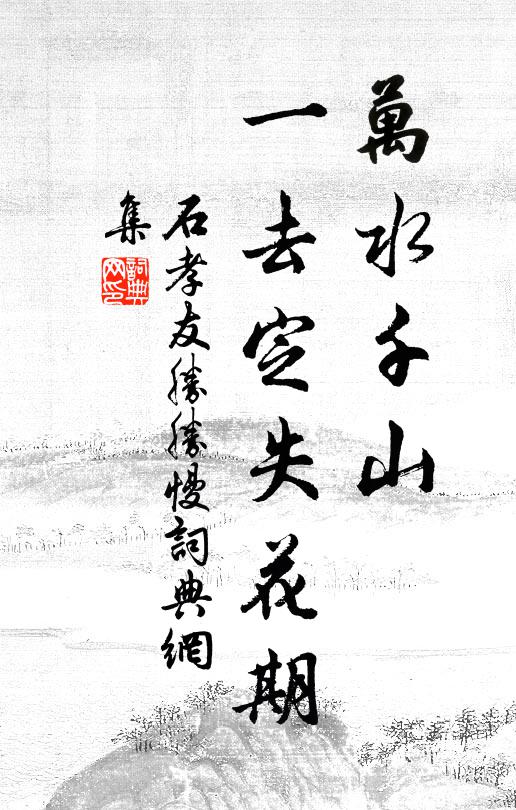 萬水千山
一去定失花期
石孝友勝勝慢詞典網
集
詞典
网印